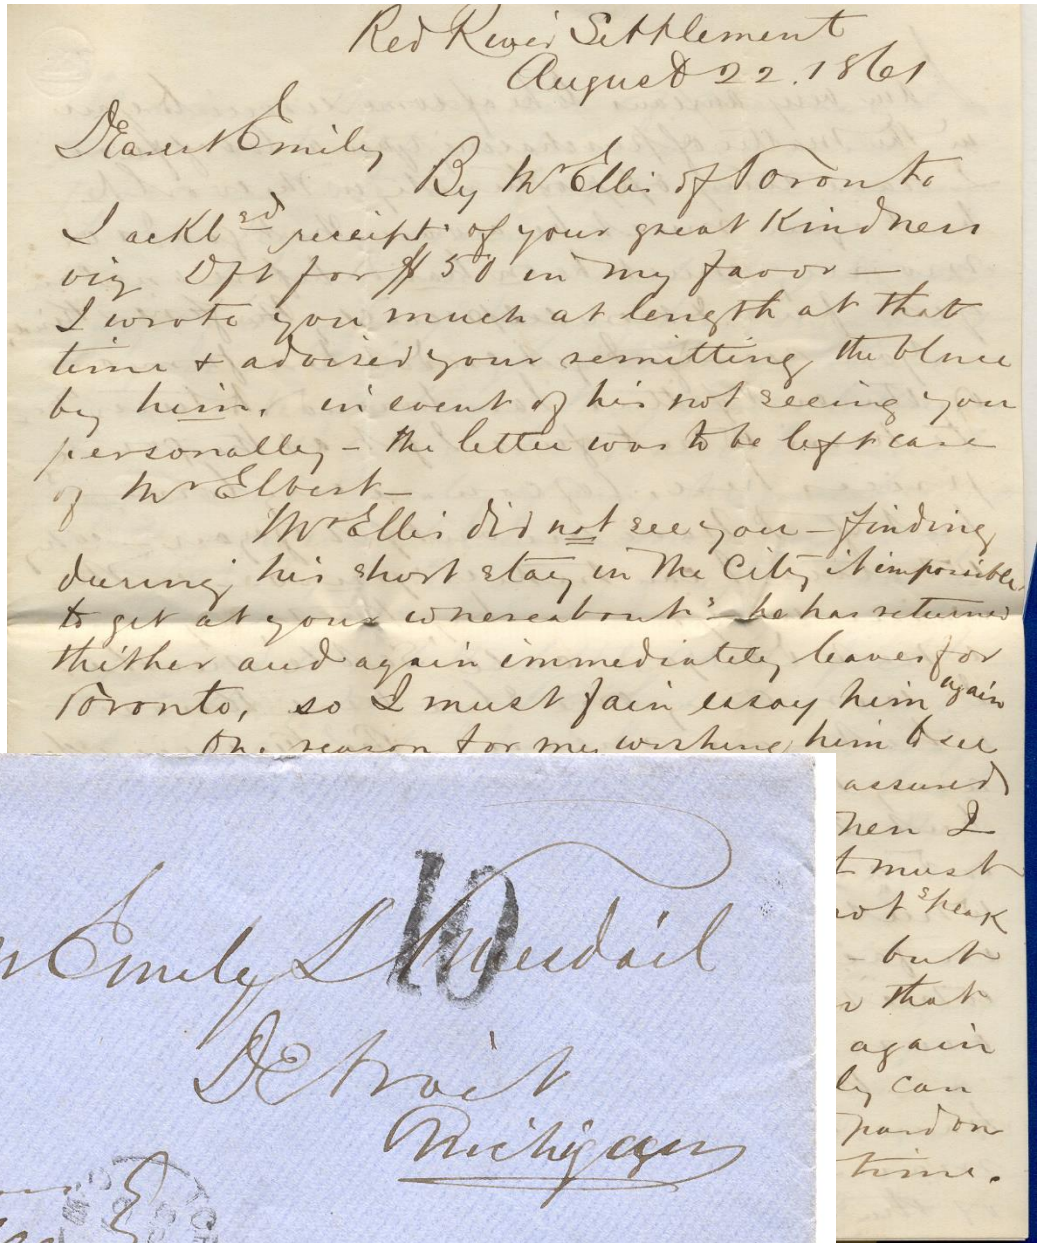 Red River Settlement
August 22. 1861
Dearest Emily
By Mr Ellis of Toronto
I ackl^ed receipt of your great Kindness
viz Dft for $50 in my favor —
I wrote you much at length at that
time & advised your remitting the
by him, in event of his not seeing you
personally – the letter was to be left care
of Mr Elbert –
Mr Ellis did not see you – finding
during his short stay in the City it impossible
to get at your whereabouts – he has returned
thither and again immediately leaves for
Toronto, so I must fain essay him again
The reason for my wishing him to see
assured
hen I
t must
not speak
– but
that
again
ly can
pardon
time.
10
Emily L
Detroit
Michigan